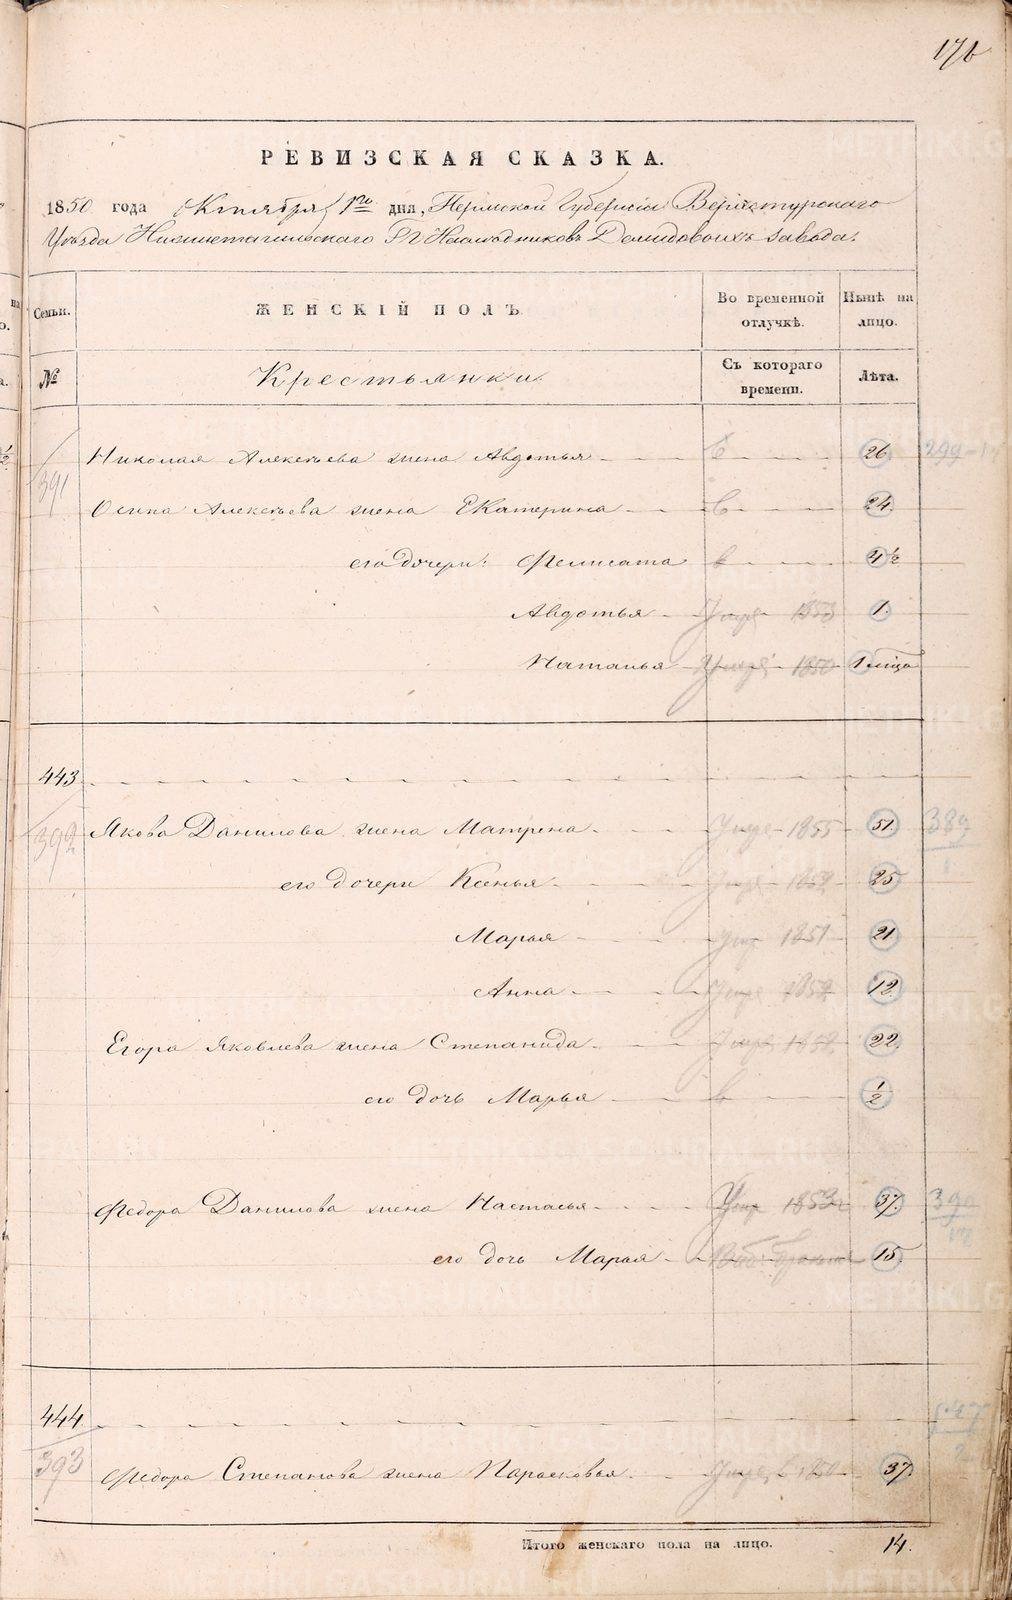 176
РЕВИЗСКАЯ СКАЗКА.
1850 года Октября 1го дня, Пермской Губернии Верхотурскаго
Уѣзда Нижнетагильскаго Гг Наслѣдниковъ Демидовыхъ завода.
Семьи. ЖЕНСКІЙ ПОЛЪ Во временной отлучкѣ. Нынѣ на лицо.
№ Крестьянки. Съ котораго времени. Лѣта.
391 Николая Алексѣева жена Авдотья 26 299
Осипа Алексѣева жена Екатерина 24.
его дочери: Фелисата 4½
Авдотья 1853 1.
Наталья 1850 1 мѣца
443
392 Якова Данилова жена Матрена 1855 51. 389
его дочери Ксенья 25
Марья 1851 21
Анна 12.
Егора Яковлева жена Степанида 22.
его дочь Марья ½
Федора Данилова жена Настасья Умр 1853 37. 390
его дочь Марья 15.
444
393 Федора Степанова жена Парасковья 1850 37.
Итого женскаго пола на лицо. 14.
METRIKI.GASO-URAL.RU